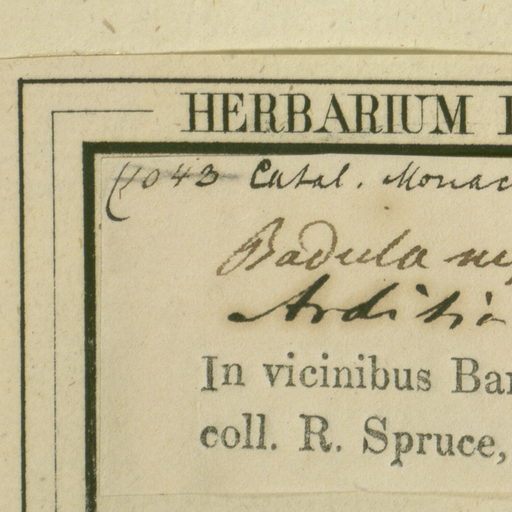 HERBARIUM
(1043 Catal. Monac
Badula
Ardisia
In vicinibus Bar
coll. R. Spruce,